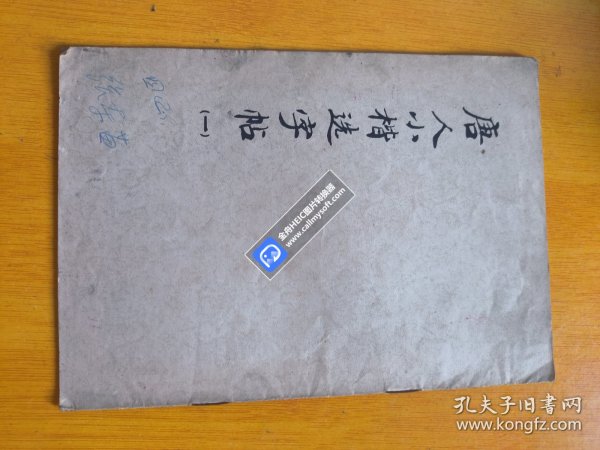 唐人小楷选字帖
(一)
金舟HEIC图片转换器
www.callmysoft.com
孔夫子旧书网
www.kongfz.com